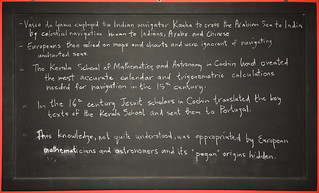 - Vasco da Gama employed the Indian navigator Kanha to cross the Arabian Sea to India
by celestial navigation known to Indians, Arabs and Chinese
- Europeans then relied on maps and charts and were ignorant of navigating
uncharted seas.
The Kerala School of Mathematics and Astronomy in Cochin had created
the most accurate calendar and trigonometric calculations
needed for navigation in the 15th century.
- In the 16th century Jesuit scholars in Cochin translated the key
texts of the Kerala School and sent them to Portugal.
- This knowledge, not quite understood, was appropriated by European
mathematicians and astronomers and its 'pagan' origins hidden.